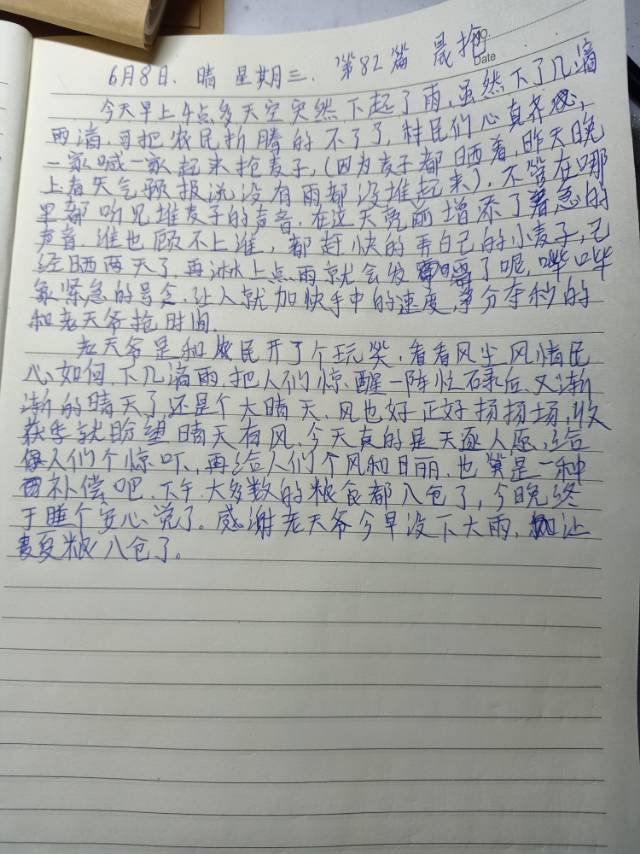 6月8日. 晴 星期三. 第82篇 晨抢
NO.
Date
今天早上4点多天空突然下起了雨,虽然下了几滴
雨滴,可把农民折腾的不了了,村民们心真齐,
一家喊一家起来抢麦子,(因为麦子都晒着,昨天晚
上看天气预报说没有雨都没堆起来),不管在哪
里都听见堆麦子的声音,在这天亮前增添了着急的
声音.谁也顾不上谁,都赶快的弄自己的小麦子,已
经晒两天了,再淋上点雨就会发霉了呢,哗哗
象紧急的号令.让人就加快手中的速度,争分夺秒的
和老天爷抢时间.
老天爷是和农民开了个玩笑.看看风尘风情民
心如何.下几滴雨.把人们惊醒一阵忙碌后.又渐
渐的晴天了,还是个大晴天.风也好正好扬扬场,收
获季就盼望晴天有风.今天真的是天遂人愿,给
人们个惊吓.再给人们个风和日丽.也算是一种
补偿吧.下午.大多数的粮食都入仓了,今晚终
于睡个安心觉了。感谢老天爷今早没下大雨.让
夏粮入仓了。